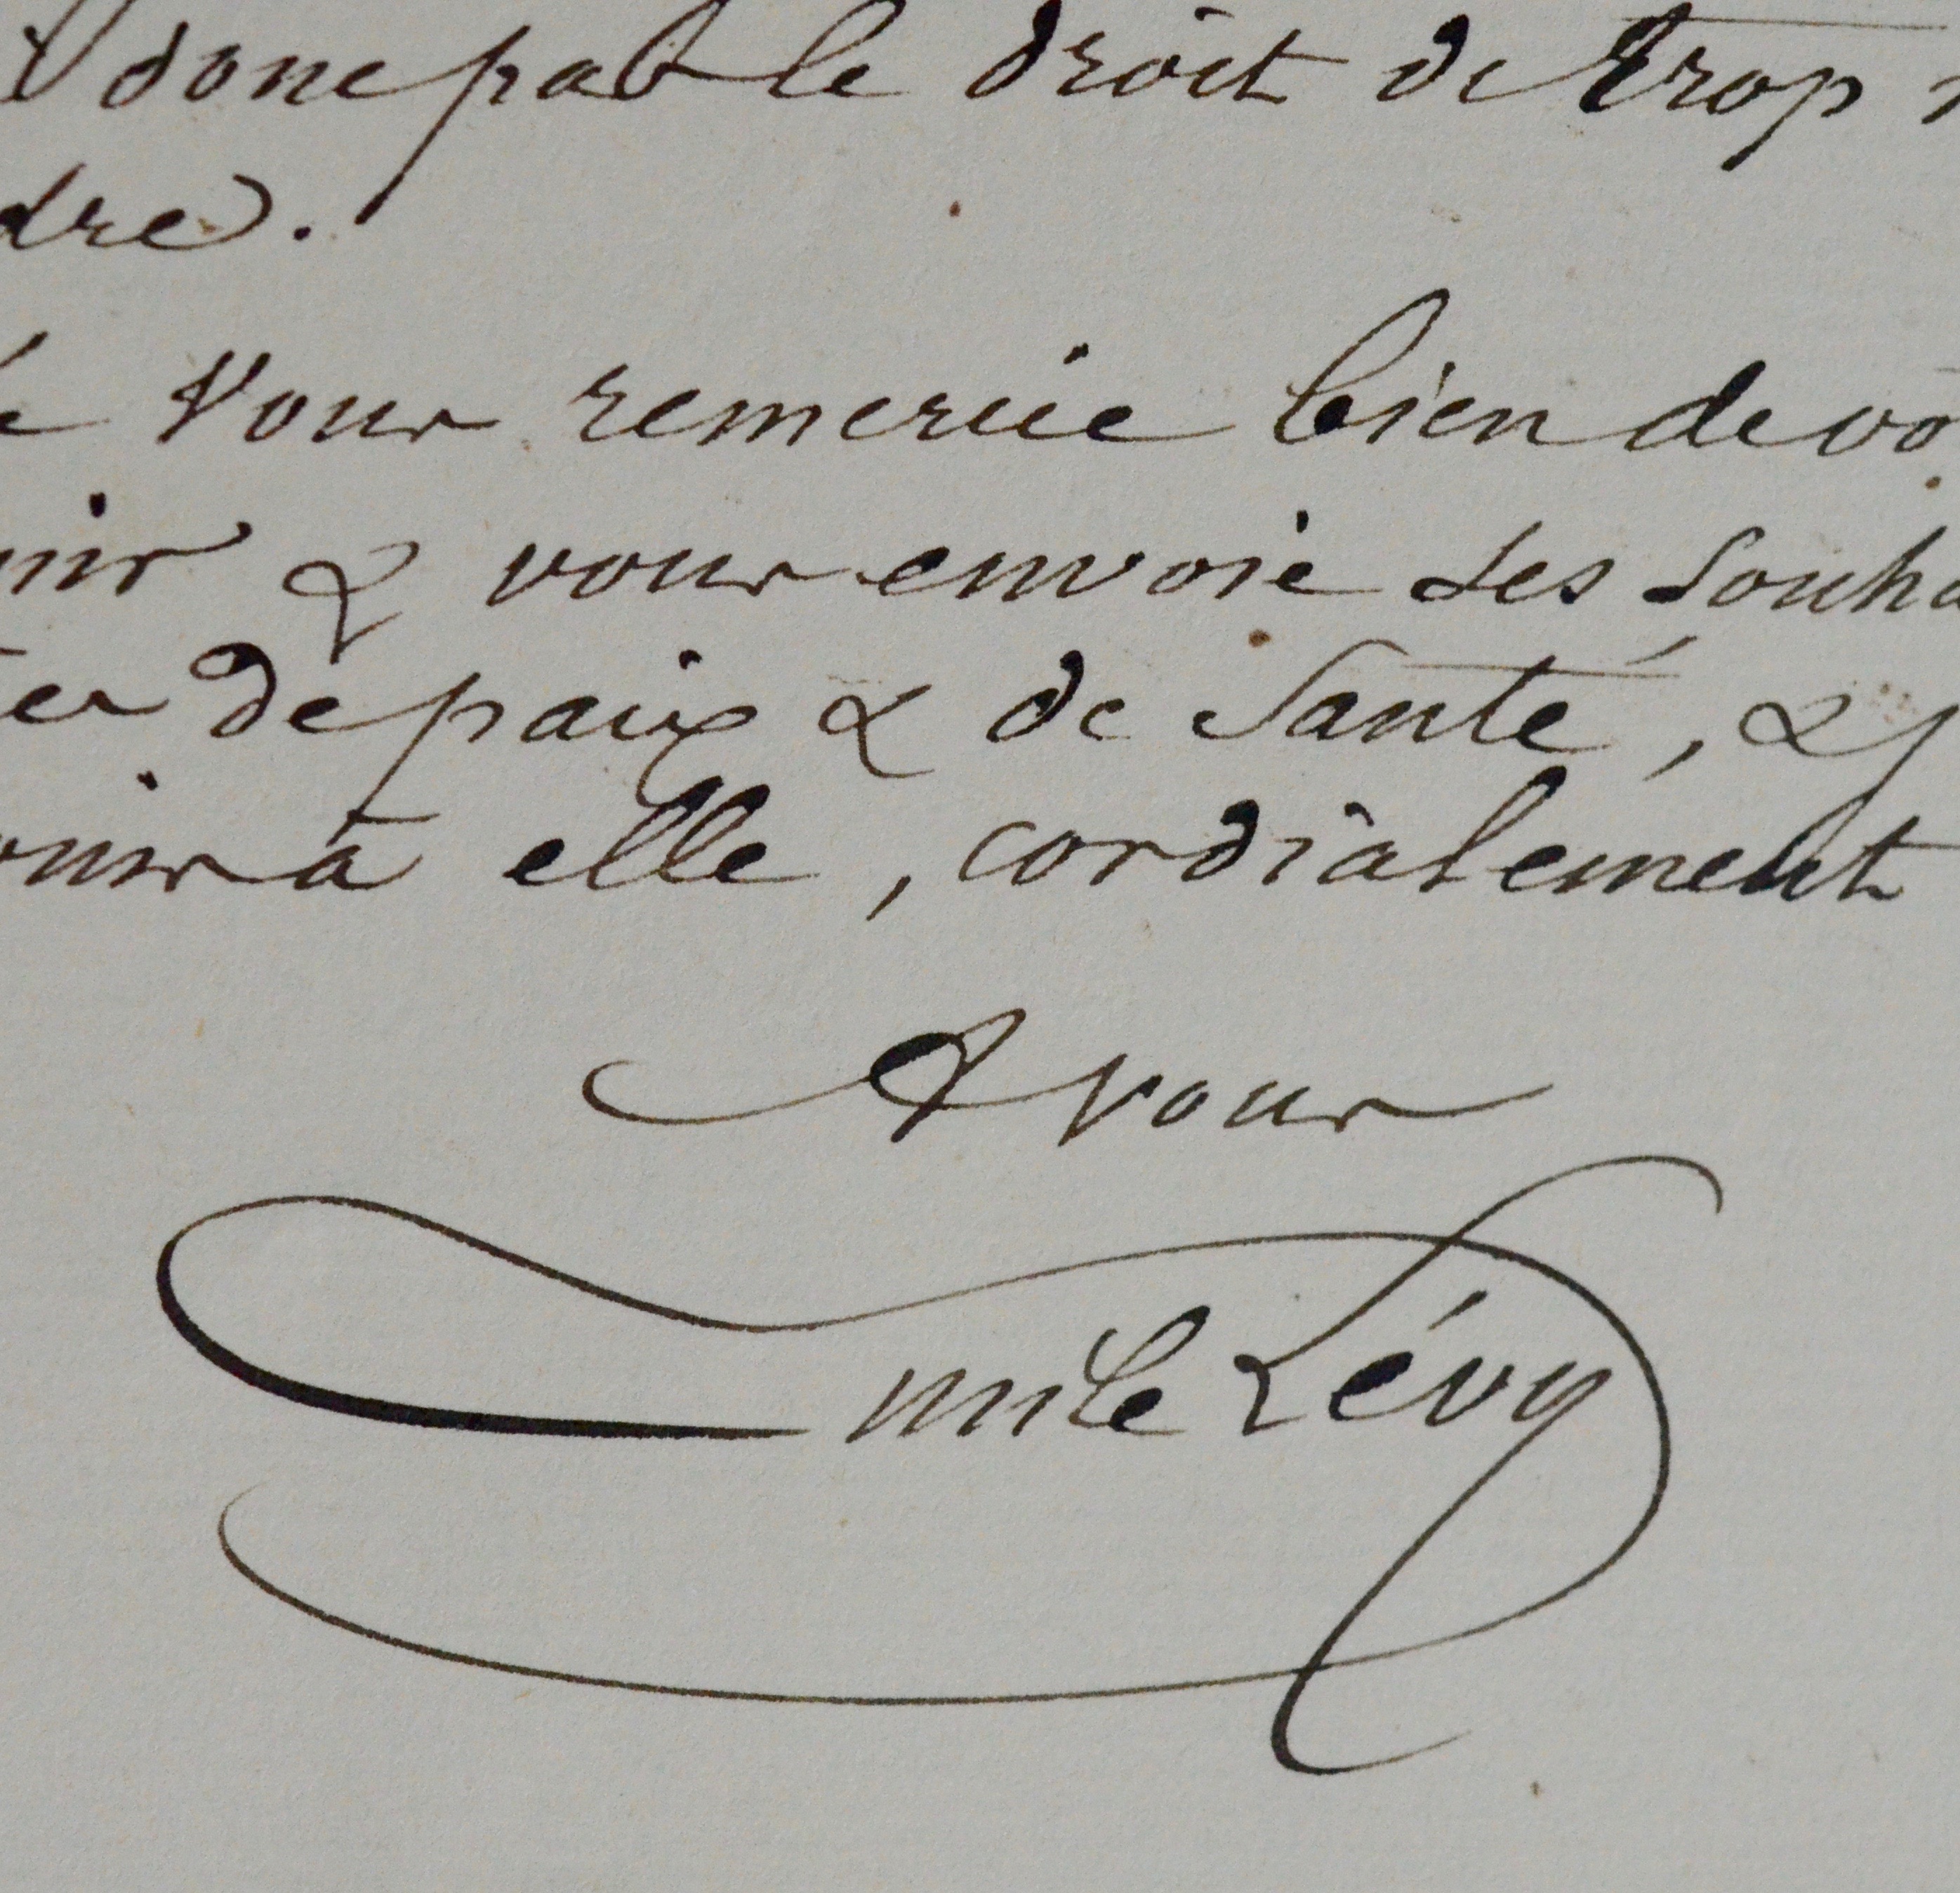 donc pas le droit de trop
dre.
Vous remercie bien de vo
nir & vous envoie ses souha
de paix & de Santé, & j
à elle, cordialement
A vous
Emile Lévy